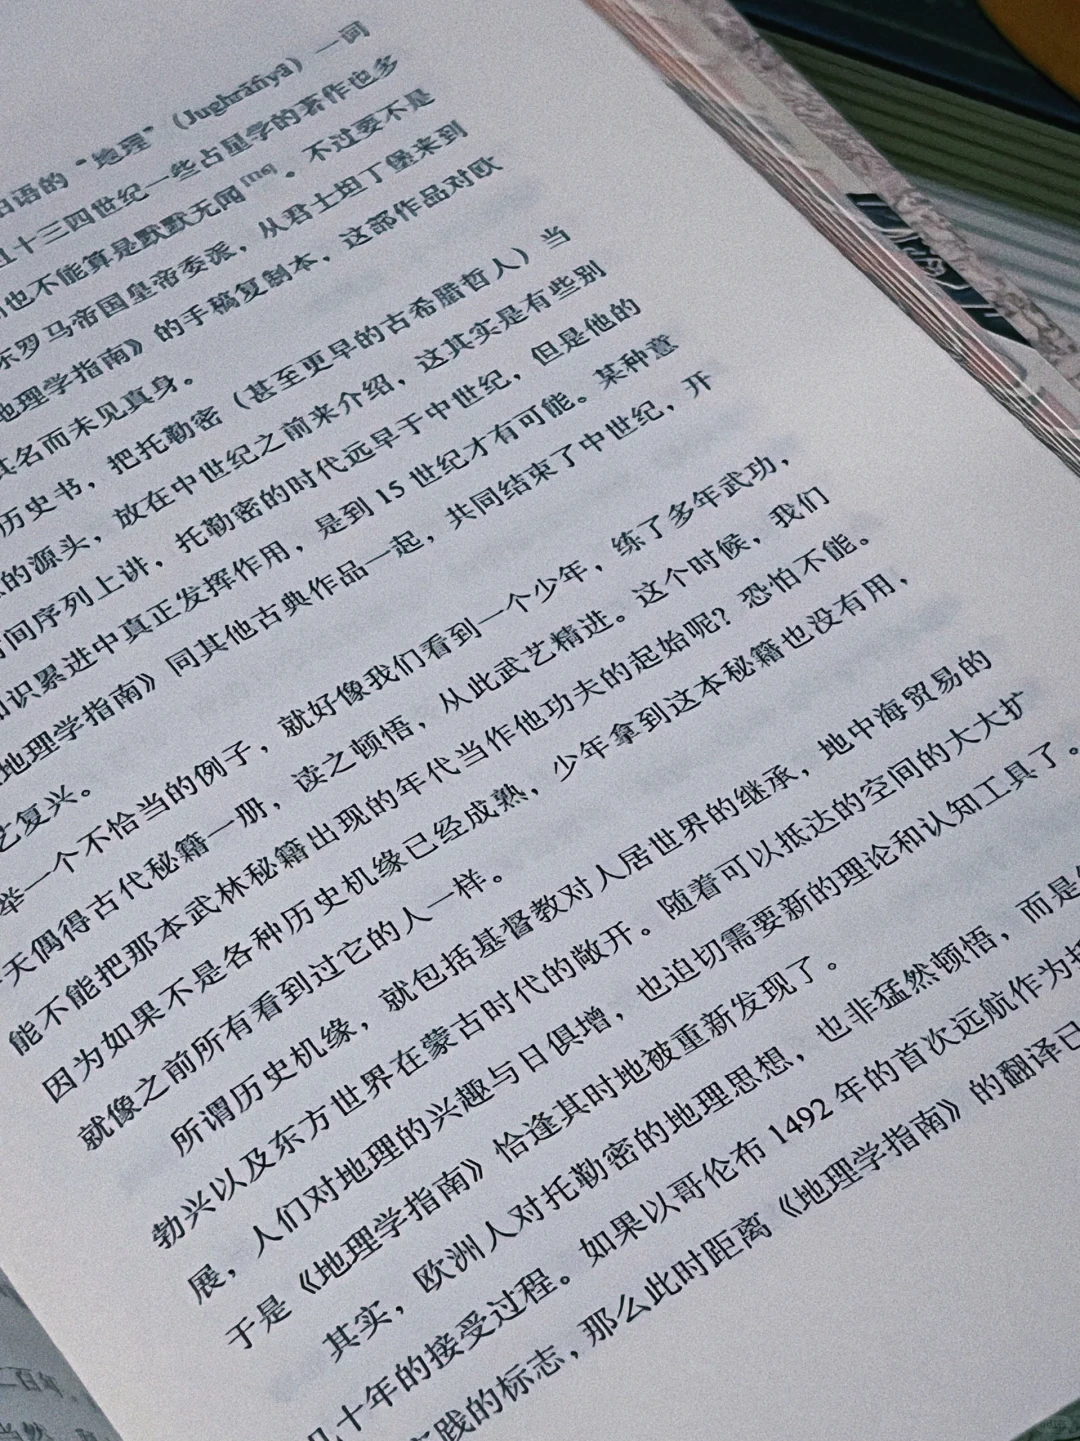 语的“地理”（Jughrāfiyā）一词
十三四世纪一些占星学的著作也多
也不能算是默默无闻[119]。不过要不是
东罗马帝国皇帝委派，从君士坦丁堡来到
地理学指南》的手稿复制本，这部作品对欧
其名而未见真身。
历史书，把托勒密（甚至更早的古希腊哲人）当
的源头，放在中世纪之前来介绍，这其实是有些别
时间序列上讲，托勒密的时代远早于中世纪，但是他的
知识累进中真正发挥作用，是到 15 世纪才有可能。某种意
地理学指南》同其他古典作品一起，共同结束了中世纪，开
艺复兴。
举一个不恰当的例子，就好像我们看到一个少年，练了多年武功，
天偶得古代秘籍一册，读之顿悟，从此武艺精进。这个时候，我们
能不能把那本武林秘籍出现的年代当作他功夫的起始呢？恐怕不能。
因为如果不是各种历史机缘已经成熟，少年拿到这本秘籍也没有用，
就像之前所有看到过它的人一样。
所谓历史机缘，就包括基督教对人居世界的继承，地中海贸易的
勃兴以及东方世界在蒙古时代的敞开。随着可以抵达的空间的大大扩
展，人们对地理的兴趣与日俱增，也迫切需要新的理论和认知工具了。
于是《地理学指南》恰逢其时地被重新发现了。
其实，欧洲人对托勒密的地理思想，也非猛然顿悟，而是
几十年的接受过程。如果以哥伦布 1492 年的首次远航作为
实践的标志，那么此时距离《地理学指南》的翻译已
二百年，
当然，